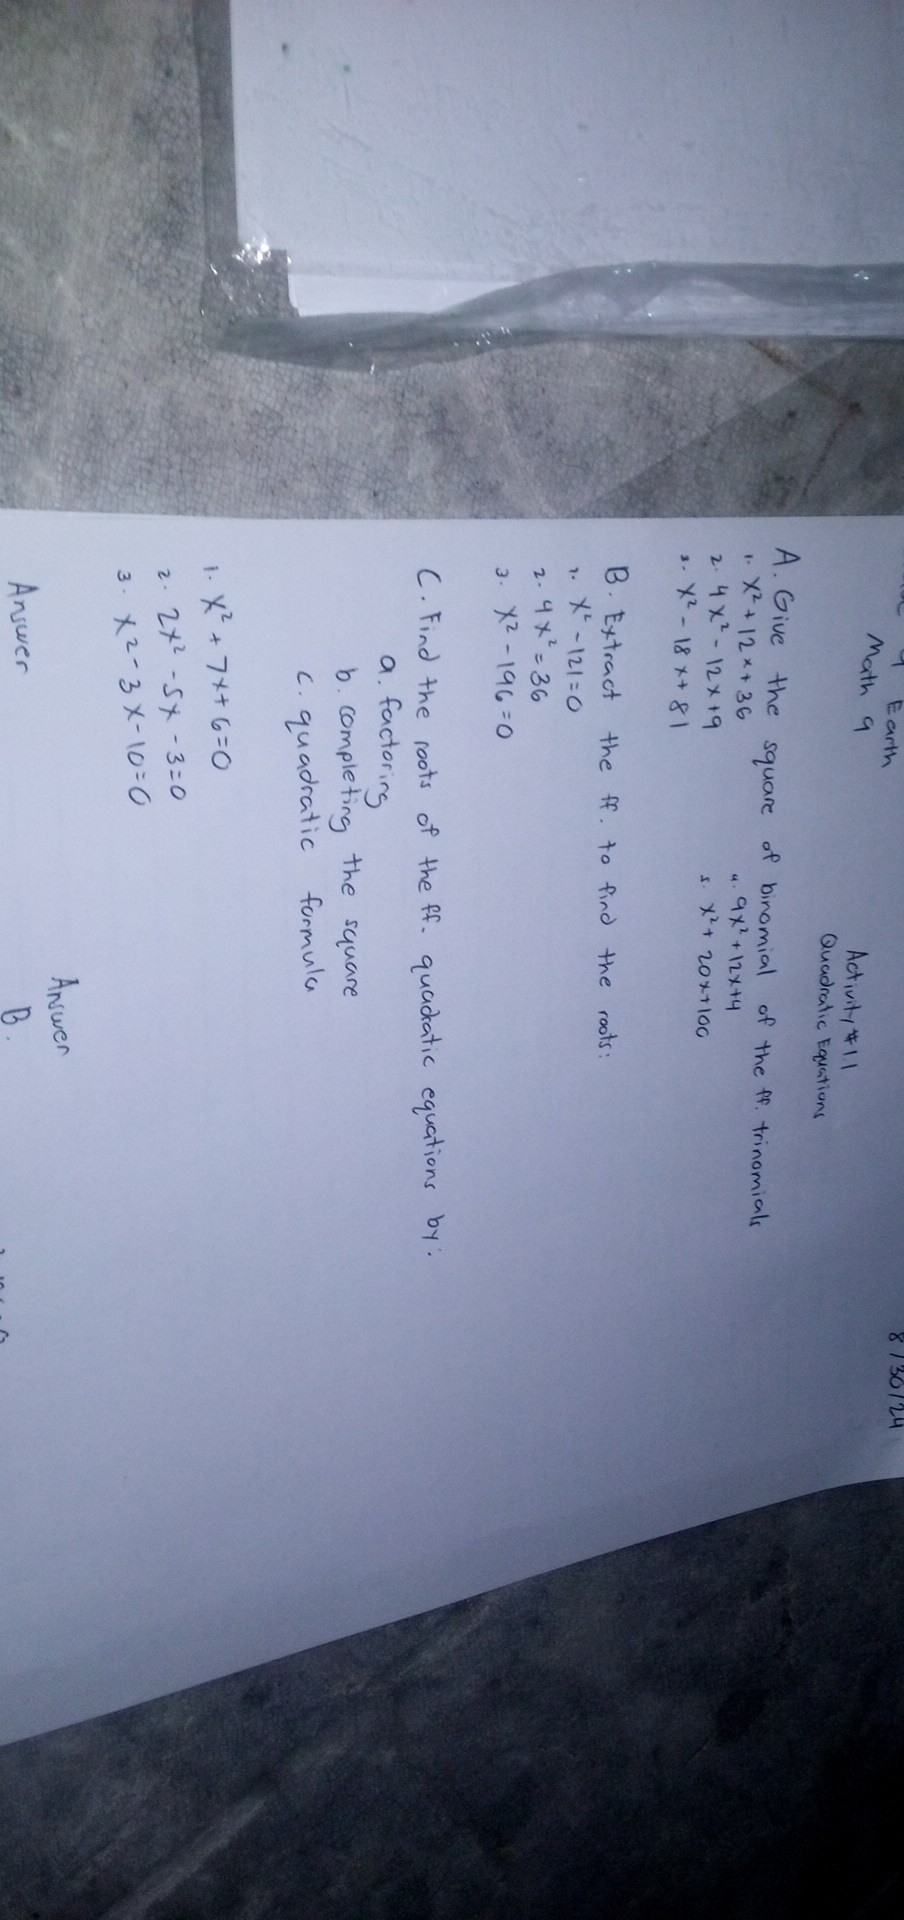 9 Earth
8/30/24
Math 9
Activity #1.1
Quadratic Equations
A. Give the square of binomial of the ff. trinomials
1. x² + 12x + 36
4. 9x² + 12x + 4
2. 4x² - 12x + 9
5. x² + 20x + 100
3. x² - 18x + 81
B. Extract the ff. to find the roots:
1. x² - 121 = 0
2. 4x² = 36
3. x² - 196 = 0
C. Find the roots of the ff. quadratic equations by:
a. factoring
b. completing the square
c. quadratic formula
1. x² + 7x + 6 = 0
2. 2x² - 5x - 3 = 0
3. x² - 3x - 10 = 0
Answer
Answer
B.